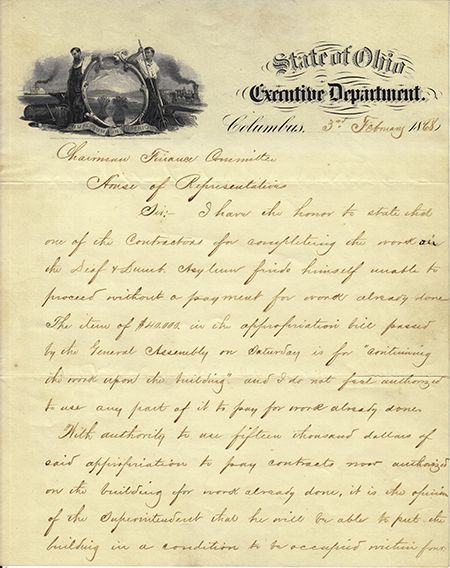 State of Ohio
Executive Department.
Columbus, 3rd February 1868
Chairman Finance Committee
House of Representatives
Sir:- I have the honor to state that
one of the Contractors for completeing the work on
the Deaf & Dumb Asylum finds himself unable to
proceed without a payment for work already done
The item of $40.000. in the appropriation bill passed
by the General Assembly on Saturday is for "continuing
the work upon the building". and I do not feel authorized
to use any part of it to pay for work already done.
With authority to use fifteen thousand dollars of
said appropriation to pay contracts now authorized
on the building for work already done, it is the opinion
of the Superintendent that he will be able to put the
building in a condition to be occupied within four